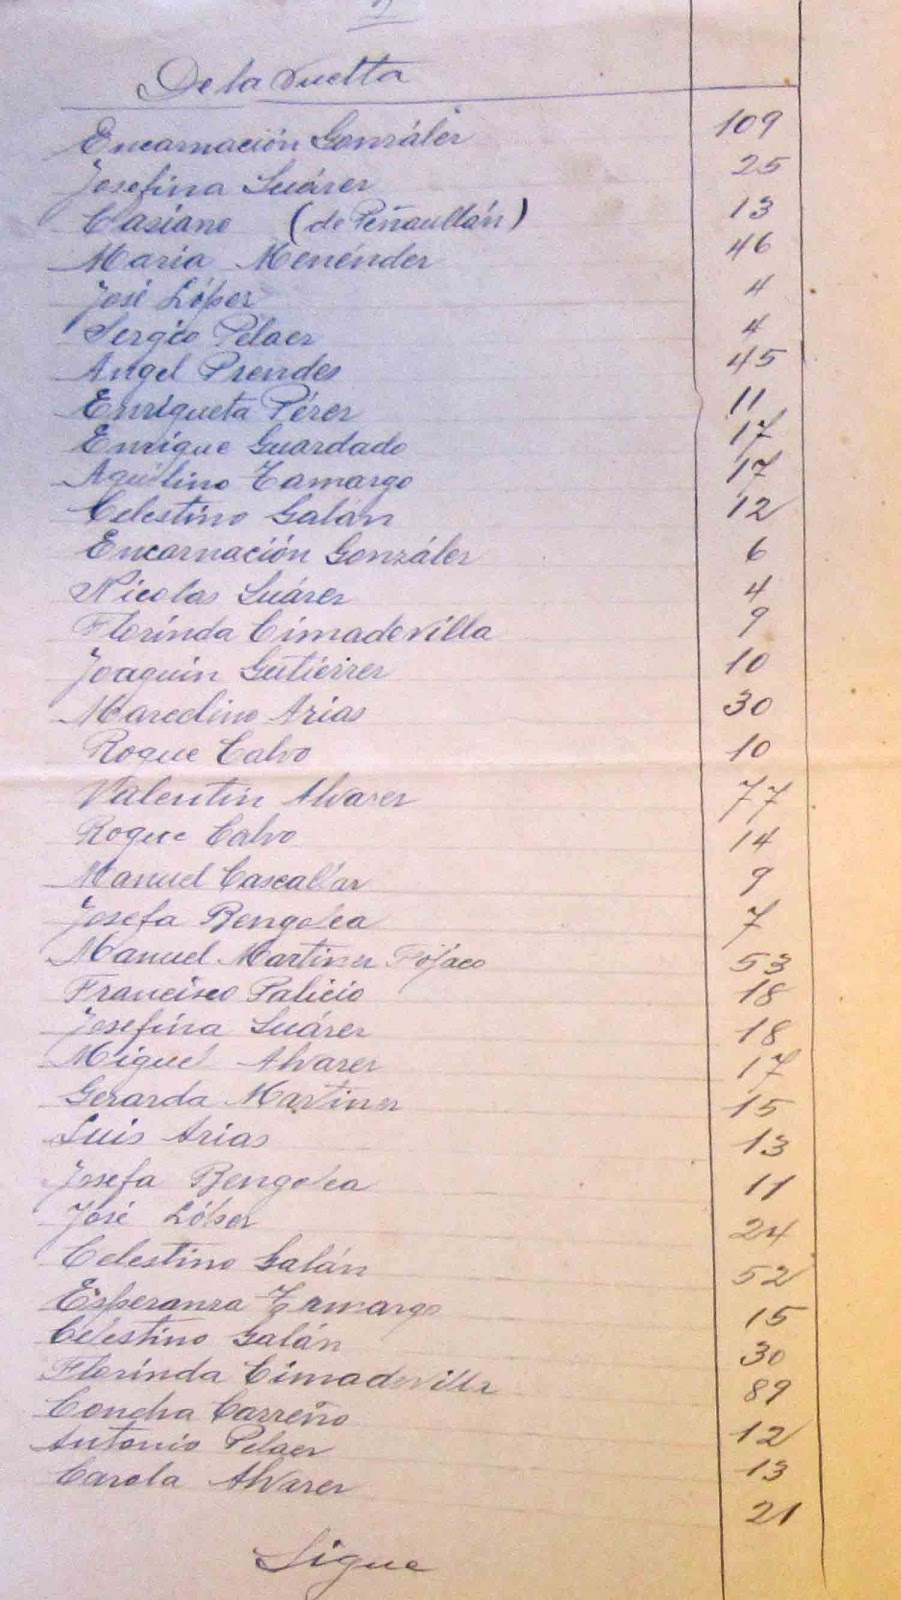 De la vuelta
Encarnación González 109
Josefina Suárez 25
Casiano (de Peñaullán) 13
Maria Menéndez 46
José López 4
Sergio Pelaez 4
Angel Prendes 45
Enriqueta Pérez 11
Enrique Guardado 17
Aquilino Tamargo 17
Celestino Galán 12
Encarnación González 6
Nicolas Suárez 4
Florinda Cimadevilla 9
Joaquin Gutierrez 10
Marcelino Arias 30
Roque Calvo 10
Valentin Alvarez 77
Roque Calvo 14
Manuel Cascallar 9
Josefa Bengolea 7
Manuel Martinez 53
Francisco Palicio 18
Josefina Suárez 18
Miguel Alvarez 17
Gerarda Martinez 15
Luis Arias 13
Josefa Bengolea 11
José López 24
Celestino Galán 52
Esperanza Tamargo 15
Celestino Galán 30
Florinda Cimadevilla 89
Concha Carreño 12
Antonio Pelaez 13
Carola Alvarez 21
Sigue